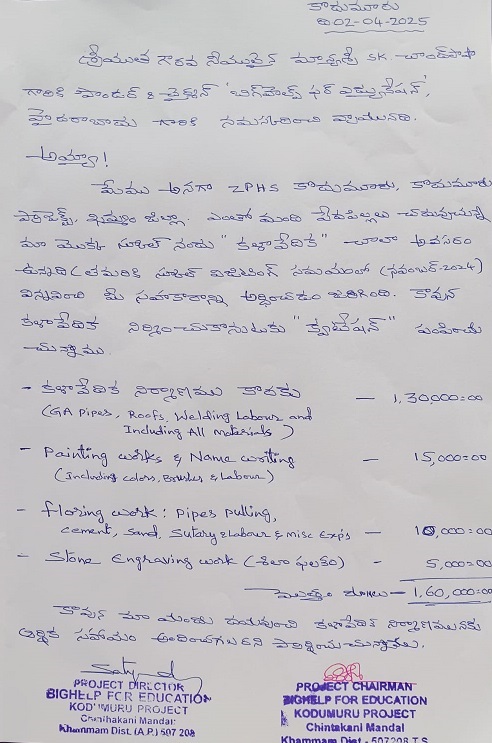 కొదుమూరు
తే 02-04-2025
శ్రీయుత గౌరవ నీయులైన మాన్యశ్రీ SK. చాంద్‌పాషా
గారికి ఫౌండర్ & చైర్మన్ 'బిగ్‌హెల్ప్ ఫర్ ఎడ్యుకేషన్',
హైదరాబాదు గారికి నమస్కరించి వ్రాయునది.
అయ్యా!
మేము అనగా ZPHS కొదుమూరు, కొదుమూరు
ప్రాజెక్ట్, ఖమ్మం జిల్లా. ఎంతో మంది పేదపిల్లలు చదువుచున్న
మా యొక్క స్కూల్ నందు "కళావేదిక" చాలా అవసరం
ఉన్నది. స్కూల్ విజిటింగ్ సమయంలో (నవంబర్-2024)
విన్నవించి మీ సహకారాన్ని అర్థించడం జరిగింది. కావున
కళావేదిక నిర్మించుకొనుటకు "కొటేషన్" పంపించు
చున్నాము.
- కళావేదిక నిర్మాణము కొరకు — 1,30,000=00
(GA Pipes, Roofs, Welding Labour and
Including All materials)
- Painting works & Name writing — 15,000=00
(Including colors, Brushes & Labour)
- floring work: pipes pulling,
cement, Sand, Sutary & Labour & misc Exp's — 10,000=00
- Stone Engraving work (శిలా ఫలకం) - 5,000=00
మొత్తం రూ॥లు — 1,60,000=00
కావున మా యందు దయవుంచి కళావేదిక నిర్మాణమునకు
ఆర్థిక సహాయం అందించగలరని ప్రార్థించుచున్నాము.
PROJECT DIRECTOR
BIGHELP FOR EDUCATION
KODUMURU PROJECT
Chinthakani Mandal
Khammam Dist. (A.P.) 507 208
PROJECT CHAIRMAN
BIGHELP FOR EDUCATION
KODUMURU PROJECT
Chintakani Mandal
Khammam Dist - 507208 T.S